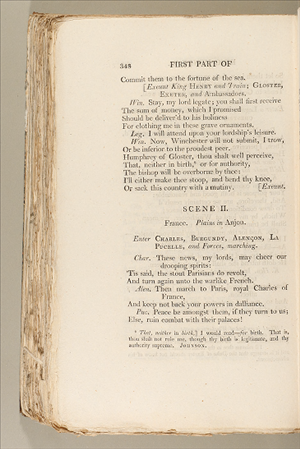 348 FIRST PART OF
Commit them to the fortune of the sea.
[Exeunt King HENRY and Train; GLOSTER,
EXETER, and Ambassadors.
Win. Stay, my lord legate; you shall first receive
The sum of money, which I promised
Should be deliver'd to his holiness
For clothing me in these grave ornaments.
Leg. I will attend upon your lordship's leisure.
Win. Now, Winchester will not submit, I trow,
Or be inferior to the proudest peer.
Humphrey of Gloster, thou shalt well perceive,
That, neither in birth,* or for authority,
The bishop will be overborne by thee:
I'll either make thee stoop, and bend thy knee,
Or sack this country with a mutiny. [Exeunt.
SCENE II.
France. Plains in Anjou.
Enter CHARLES, BURGUNDY, ALENÇON, LA
PUCELLE, and Forces, marching.
Char. These news, my lords, may cheer our
drooping spirits:
'Tis said, the stout Parisians do revolt,
And turn again unto the warlike French.
Alen. Then march to Paris, royal Charles of
France,
And keep not back your powers in dalliance.
Puc. Peace be amongst them, if they turn to us;
Else, ruin combat with their palaces!
* That, neither in birth,] I would read—for birth. That is,
thou shalt not rule me, though thy birth is legitimate, and thy
authority supreme. JOHNSON.